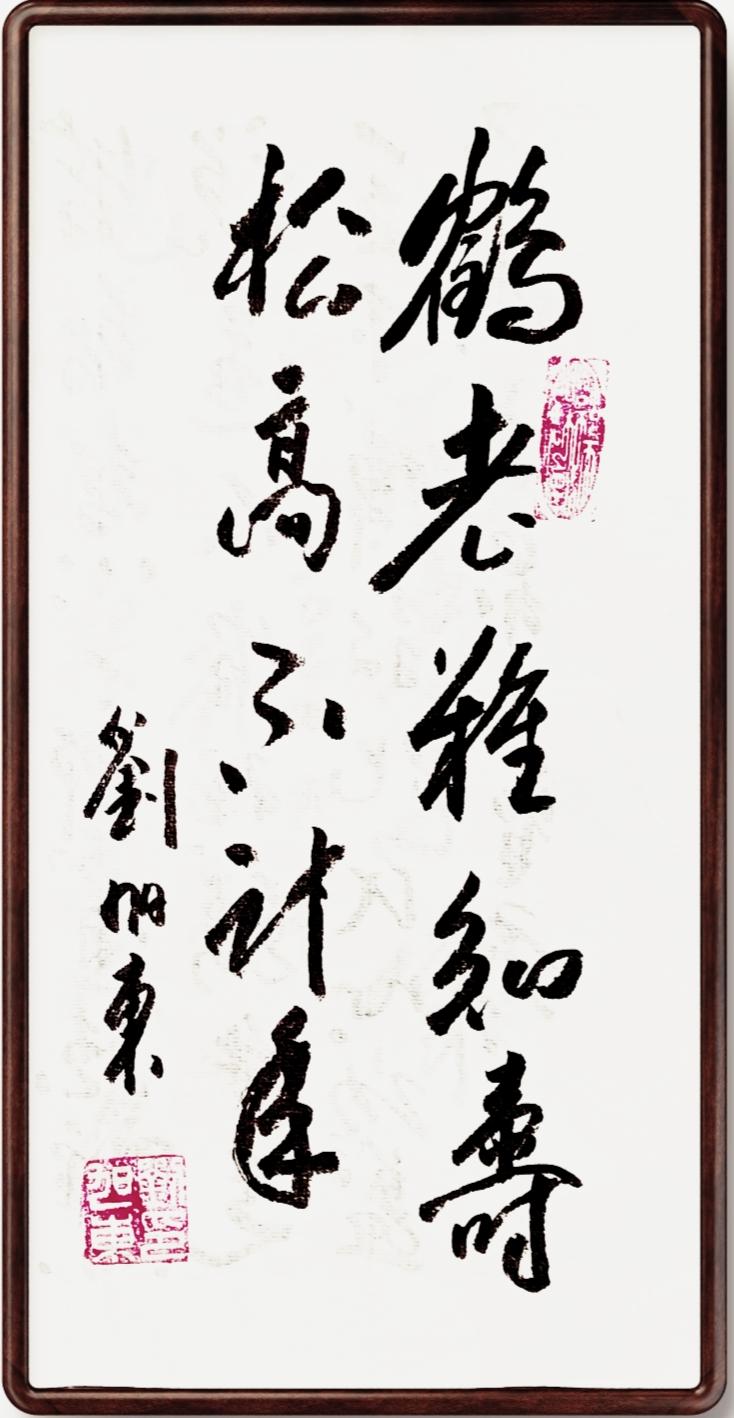 鶴老難知壽
松高不計年
劉明東